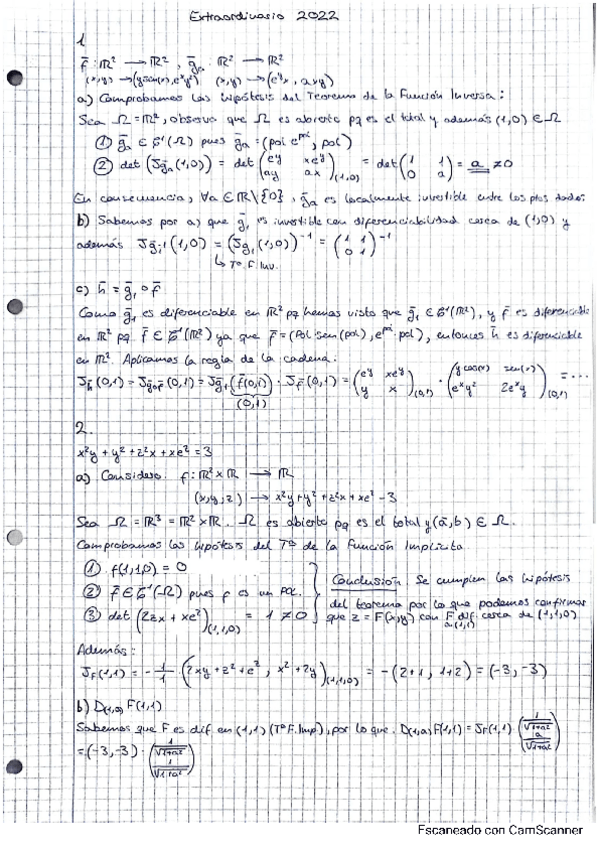 Extraordinario 2022
1
f̄: ℝ² → ℝ² , ḡₐ: ℝ² → ℝ²
(x,y) → (y sen(x), eˣy²) (x,y) → (eʸx, axy)
a) Comprobamos las hipótesis del Teorema de la Función Inversa:
Sea Ω = ℝ², observa que Ω es abierto pq es el total y además (1,0) ∈ Ω
① ḡₐ ∈ C¹(Ω) pues ḡₐ = (pol e^pol, pol)
② det (Jḡₐ(1,0)) = det (eʸ xeʸ ; ay ax)(1,0) = det (1 1 ; 0 a) = a ≠ 0
En consecuencia, ∀a ∈ ℝ\{0}, ḡₐ es localmente invertible entre los ptos dados
b) Sabemos por a) que ḡ₁ es invertible con diferenciabilidad cerca de (1,0) y
además Jḡ₁⁻¹(1,0) = (Jḡ₁(1,0))⁻¹ = (1 1 ; 0 1)⁻¹
↳ Tº F. Inv.
c) h̄ = ḡ₁ ∘ f̄
Como ḡ₁ es diferenciable en ℝ² pq hemos visto que ḡ₁ ∈ C¹(ℝ²), y f̄ es diferenciable
en ℝ² pq f̄ ∈ C¹(ℝ²) ya que f̄ = (pol sen(pol), e^pol pol), entonces h̄ es diferenciable
en ℝ². Aplicamos la regla de la cadena:
Jh̄(0,1) = Jḡ₁∘f̄(0,1) = Jḡ₁(f̄(0,1)) · Jf̄(0,1) = (eʸ xeʸ ; y x)(0,1) · (y cos(x) sen(x) ; eˣy² 2eˣy)(0,1) = ...
(0,1)
2.
x²y + y² + z²x + xeᶻ = 3
a) Considero f: ℝ² × ℝ → ℝ
(x,y,z) → x²y + y² + z²x + xeᶻ - 3
Sea Ω = ℝ³ = ℝ² × ℝ. Ω es abierto pq es el total y (ā,b) ∈ Ω.
Comprobamos las hipótesis del Tº de la Función Implícita
① f(1,1,0) = 0
② f̄ ∈ C¹(Ω) pues f es un pol.
③ det (2zx + xeᶻ)(1,1,0) = 1 ≠ 0
Conclusión: Se cumplen las hipótesis
del teorema por lo que podemos confirmar
que z = F(x,y) con F dif. cerca de (1,1,0)
a (1,1)
Además:
JF(1,1) = -1/1 · (2xy + z² + eᶻ , x² + 2y)(1,1,0) = -(2+1, 1+2) = (-3,-3)
b) D(1,a) F(1,1)
Sabemos que F es dif. en (1,1) (Tº F. Imp), por lo que D(1,a) F(1,1) = JF(1,1) · (1/√1+a² ; a/√1+a²)
= (-3,-3) · (1/√1+a² ; 1/√1+a²)
Escaneado con CamScanner